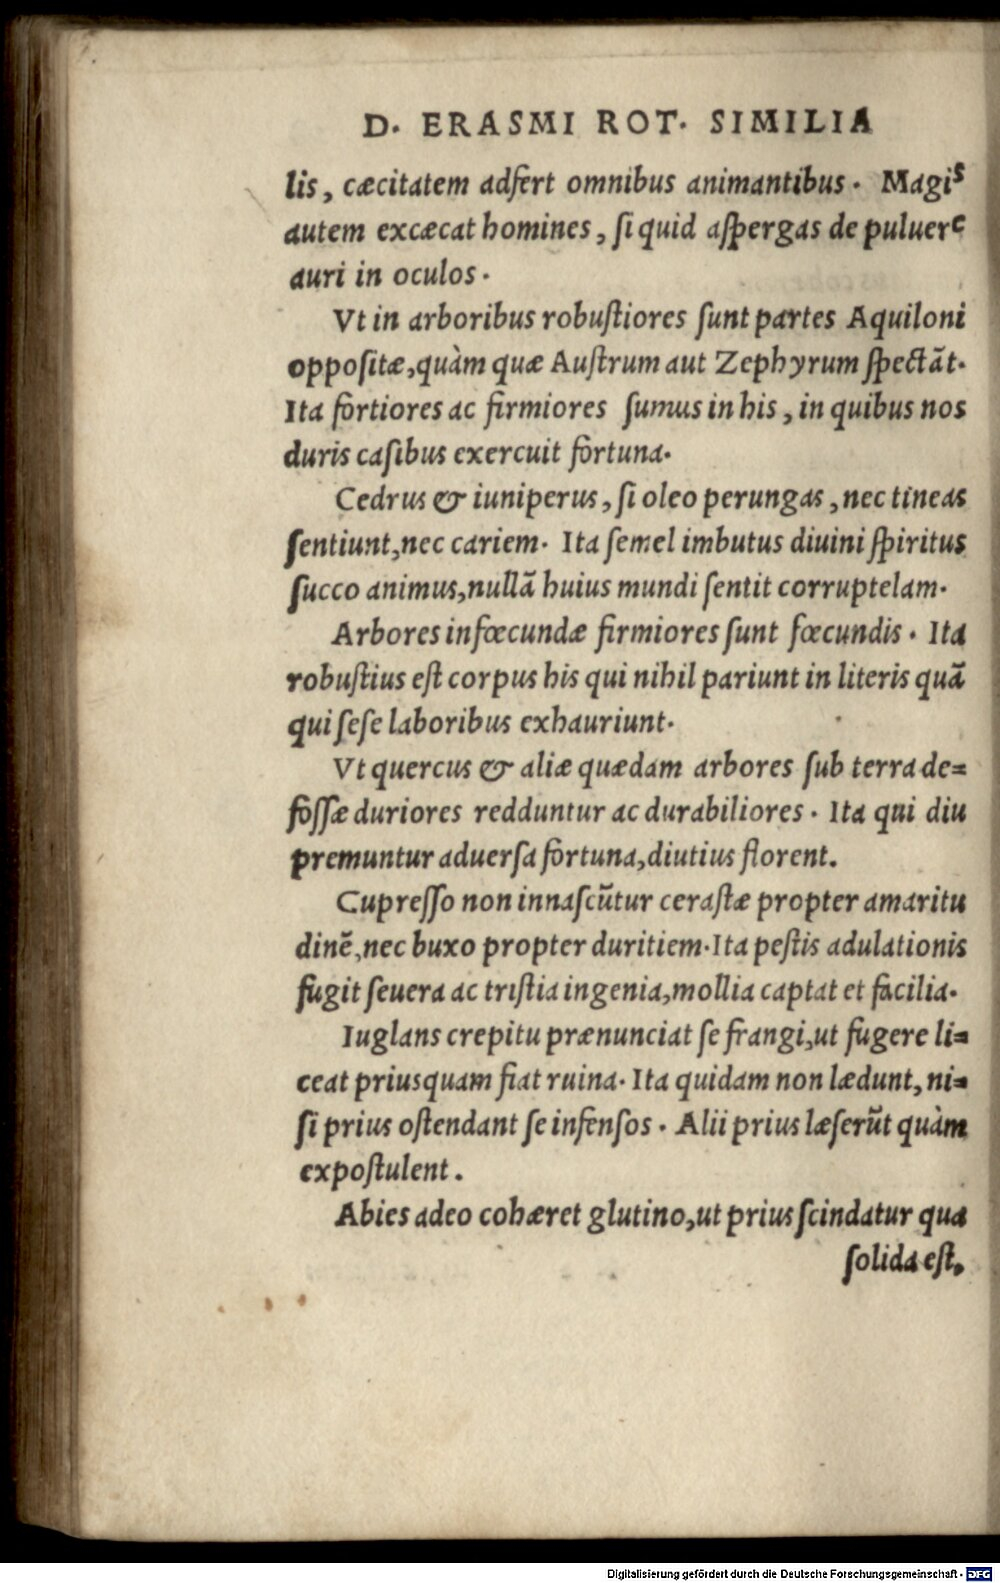 D. ERASMI ROT. SIMILIA
lis, cæcitatem adfert omnibus animantibus. Magis
autem excæcat homines, ſi quid aſpergas de puluere
auri in oculos.
Vt in arboribus robuſtiores ſunt partes Aquiloni
oppoſitæ, quàm quæ Auſtrum aut Zephyrum ſpectāt.
Ita fortiores ac firmiores ſumus in his, in quibus nos
duris caſibus exercuit fortuna.
Cedrus & iuniperus, ſi oleo perungas, nec tineas
ſentiunt, nec cariem. Ita ſemel imbutus diuini ſpiritus
ſucco animus, nullā huius mundi ſentit corruptelam.
Arbores infœcundæ firmiores ſunt fœcundis. Ita
robuſtius eſt corpus his qui nihil pariunt in literis quā
qui ſeſe laboribus exhauriunt.
Vt quercus & aliæ quædam arbores ſub terra de=
foſſæ duriores redduntur ac durabiliores. Ita qui diu
premuntur aduerſa fortuna, diutius florent.
Cupreſſo non innaſcūtur ceraſtæ propter amaritu
dinē, nec buxo propter duritiem. Ita peſtis adulationis
fugit ſeuera ac triſtia ingenia, mollia captat et facilia.
Iuglans crepitu prænunciat ſe frangi, ut fugere li=
ceat priusquam fiat ruina. Ita quidam non lædunt, ni=
ſi prius oſtendant ſe infenſos. Alii prius læſerūt quàm
expoſtulent.
Abies adeo cohæret glutino, ut prius ſcindatur qua
ſolida eſt,
Digitalisierung gefördert durch die Deutsche Forschungsgemeinschaft - DFG